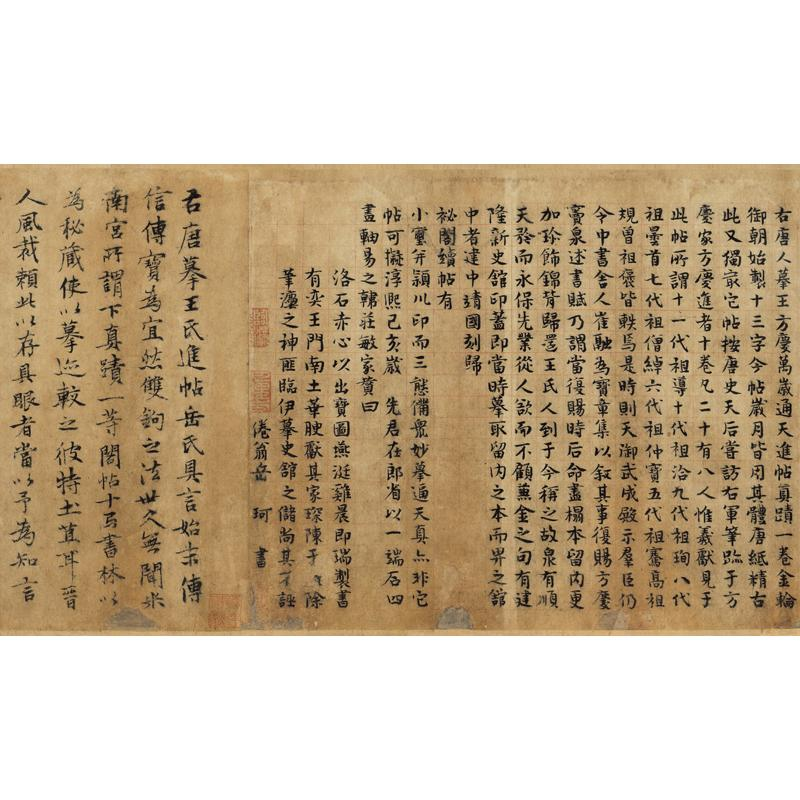 右唐人摹王方慶萬歲通天進帖真蹟一卷金輪
御朝始製十三字今帖歲月皆用其體唐紙精古
此又獨最它帖按唐史天后嘗訪右軍筆蹟于方
慶家方慶進者十卷凡二十有八人惟羲獻見于
此帖所謂十一代祖導十代祖洽九代祖珣八代
祖曇首七代祖僧綽六代祖仲寶五代祖騫高祖
規曽祖褒皆軼焉是時則天御武成殿示羣臣仍
令中書舍人崔融為寶章集以叙其事復賜方慶
竇泉述書賦乃謂當復賜時后命盡榻本留内更
加珍飾錦背歸還王氏人到于今稱之故泉有順
天矜而永保先業從人欲而不顧蕪金之句有建
隆新史舘印蓋即當時摹取留内之本而畀之舘
中者建中靖國刻歸
祕閣續帖有
小璽并潁川印而三態備眾妙摹逼天真亦非它
帖可擬淳熙己亥歲 先君在郎省以一端石四
畫軸易之韓莊敏家贊曰
洛石赤心以出寶圖燕涎雞晨即瑞製書
有奕王門南土華腴獻其家琛陳于〻除
筆瀍之神匪臨伊摹史舘之儲尚其不誣
倦翁岳 珂 書
右唐摹王氏進帖岳氏具言始末傳
信傳寶為宜然雙鉤之法世久無聞米
南宮所謂下真蹟一等閣帖十百書林以
為秘藏使以摹迹較之彼特土苴耳晉
人風裁賴此以存具眼者當以予為知言